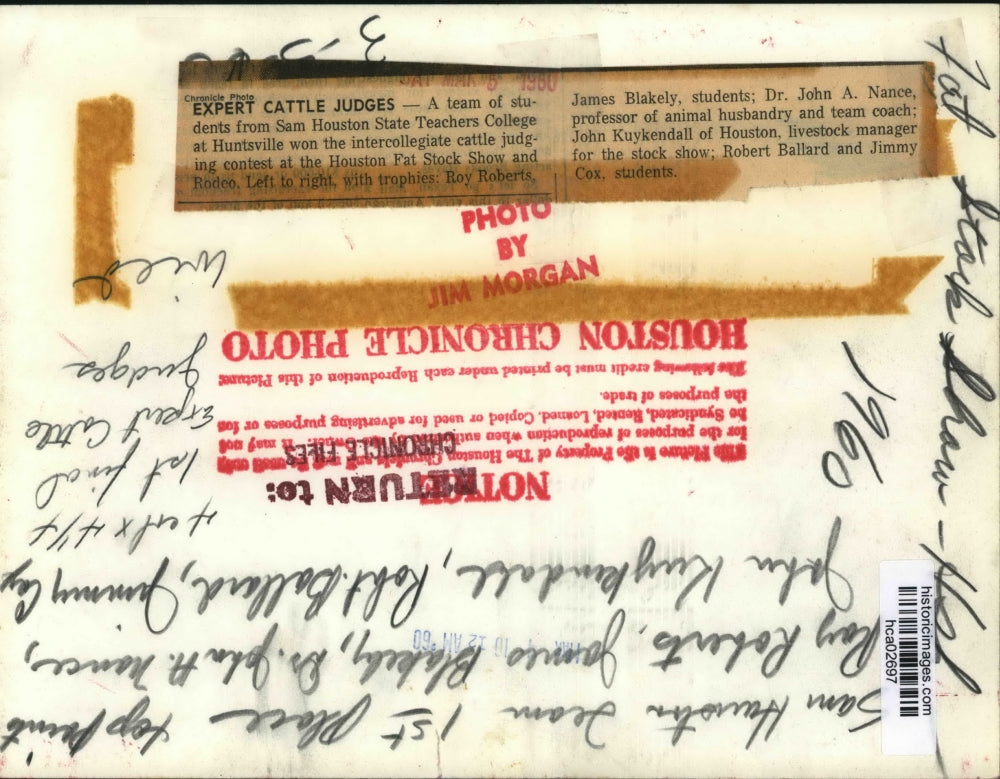 3-5-60
SAT MAR 5 1960
Chronicle Photo
EXPERT CATTLE JUDGES — A team of stu-
dents from Sam Houston State Teachers College
at Huntsville won the intercollegiate cattle judg-
ing contest at the Houston Fat Stock Show and
Rodeo. Left to right, with trophies: Roy Roberts,
James Blakely, students; Dr. John A. Nance,
professor of animal husbandry and team coach;
John Kuykendall of Houston, livestock manager
for the stock show; Robert Ballard and Jimmy
Cox, students.
PHOTO
BY
JIM MORGAN
Fat Stock Show - Hsn
1960
historicimages.com
hca02697
Sam Houston Team 1st Place
Roy Roberts, James Blakely, Dr. John H. Nance,
John Kuykendall, Robt. Ballard, Jimmy Cox
MAR 4 10 12 AM '60
1st final
Expert Cattle
Judges
NOTICE
RETURN to:
CHRONICLE FILES
This Picture is the Property of The Houston Chronicle and
for the purposes of reproduction when It may not
be Syndicated, Rented, Loaned, Copied or used for advertising purposes or for
the purposes of trade.
The following credit must be printed under each Reproduction of this Picture:
HOUSTON CHRONICLE PHOTO